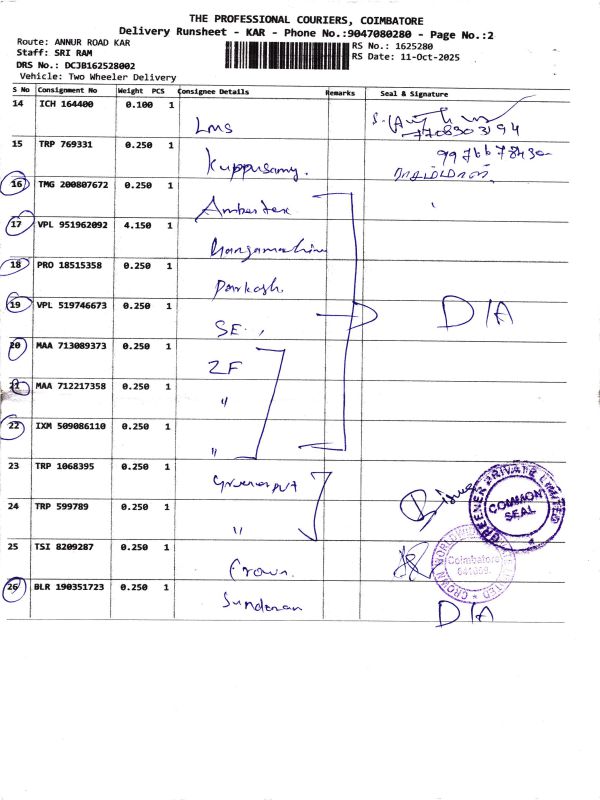 THE PROFESSIONAL COURIERS, COIMBATORE
Delivery Runsheet - KAR - Phone No.:9047080280 - Page No.:2
Route: ANNUR ROAD KAR
RS No.: 1625280
Staff: SRI RAM
RS Date: 11-Oct-2025
DRS No.: DCJB162528002
Vehicle: Two Wheeler Delivery
S No Consignment No Weight PCS Consignee Details Remarks Seal & Signature
14 ICH 164400 0.100 1
Lms
7708303194
15 TRP 769331 0.250 1
Kuppusamy.
9976678430
16 TMG 200807672 0.250 1
Ambertex
17 VPL 951962092 4.150 1
18 PRO 18515358 0.250 1
19 VPL 519746673 0.250 1
D/A
SE.
20 MAA 713089373 0.250 1
ZF
21 MAA 712217358 0.250 1
"
22 IXM 509086110 0.250 1
"
23 TRP 1068395 0.250 1
GREENER PRIVATE LIMITED
COMMON SEAL
24 TRP 599789 0.250 1
"
25 TSI 8209287 0.250 1
Crown
Coimbatore
26 BLR 190351723 0.250 1
Sunderan
D/A